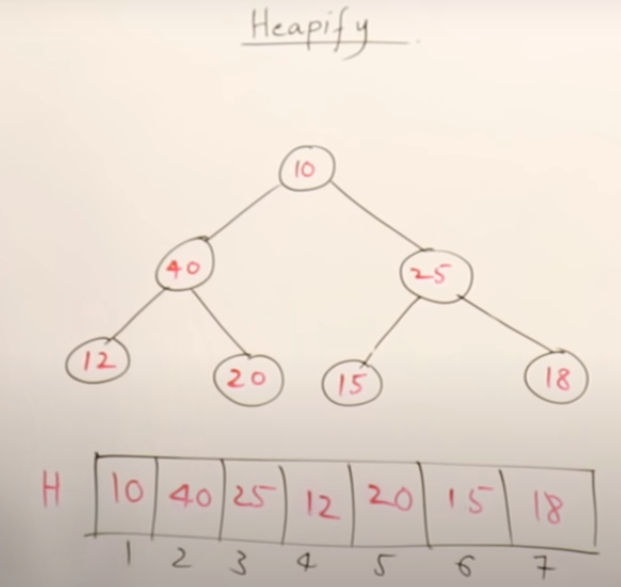 Heapify
10
40 25
12 20 15 18
H 10 40 25 12 20 15 18
1 2 3 4 5 6 7